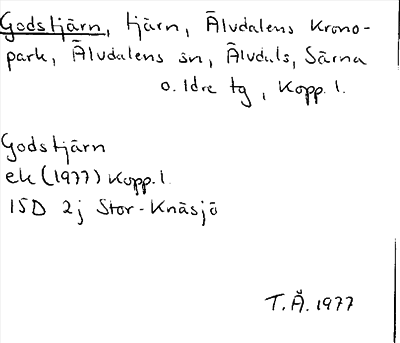 Godstjärn, tjärn, Älvdalens Krono-
park, Älvdalens sn, Älvdals, Särna
o. Idre tg, Kopp. l.
Godstjärn
ek (1977) Kopp. l.
15D 2j Stor-Knäsjö
T. Å. 1977